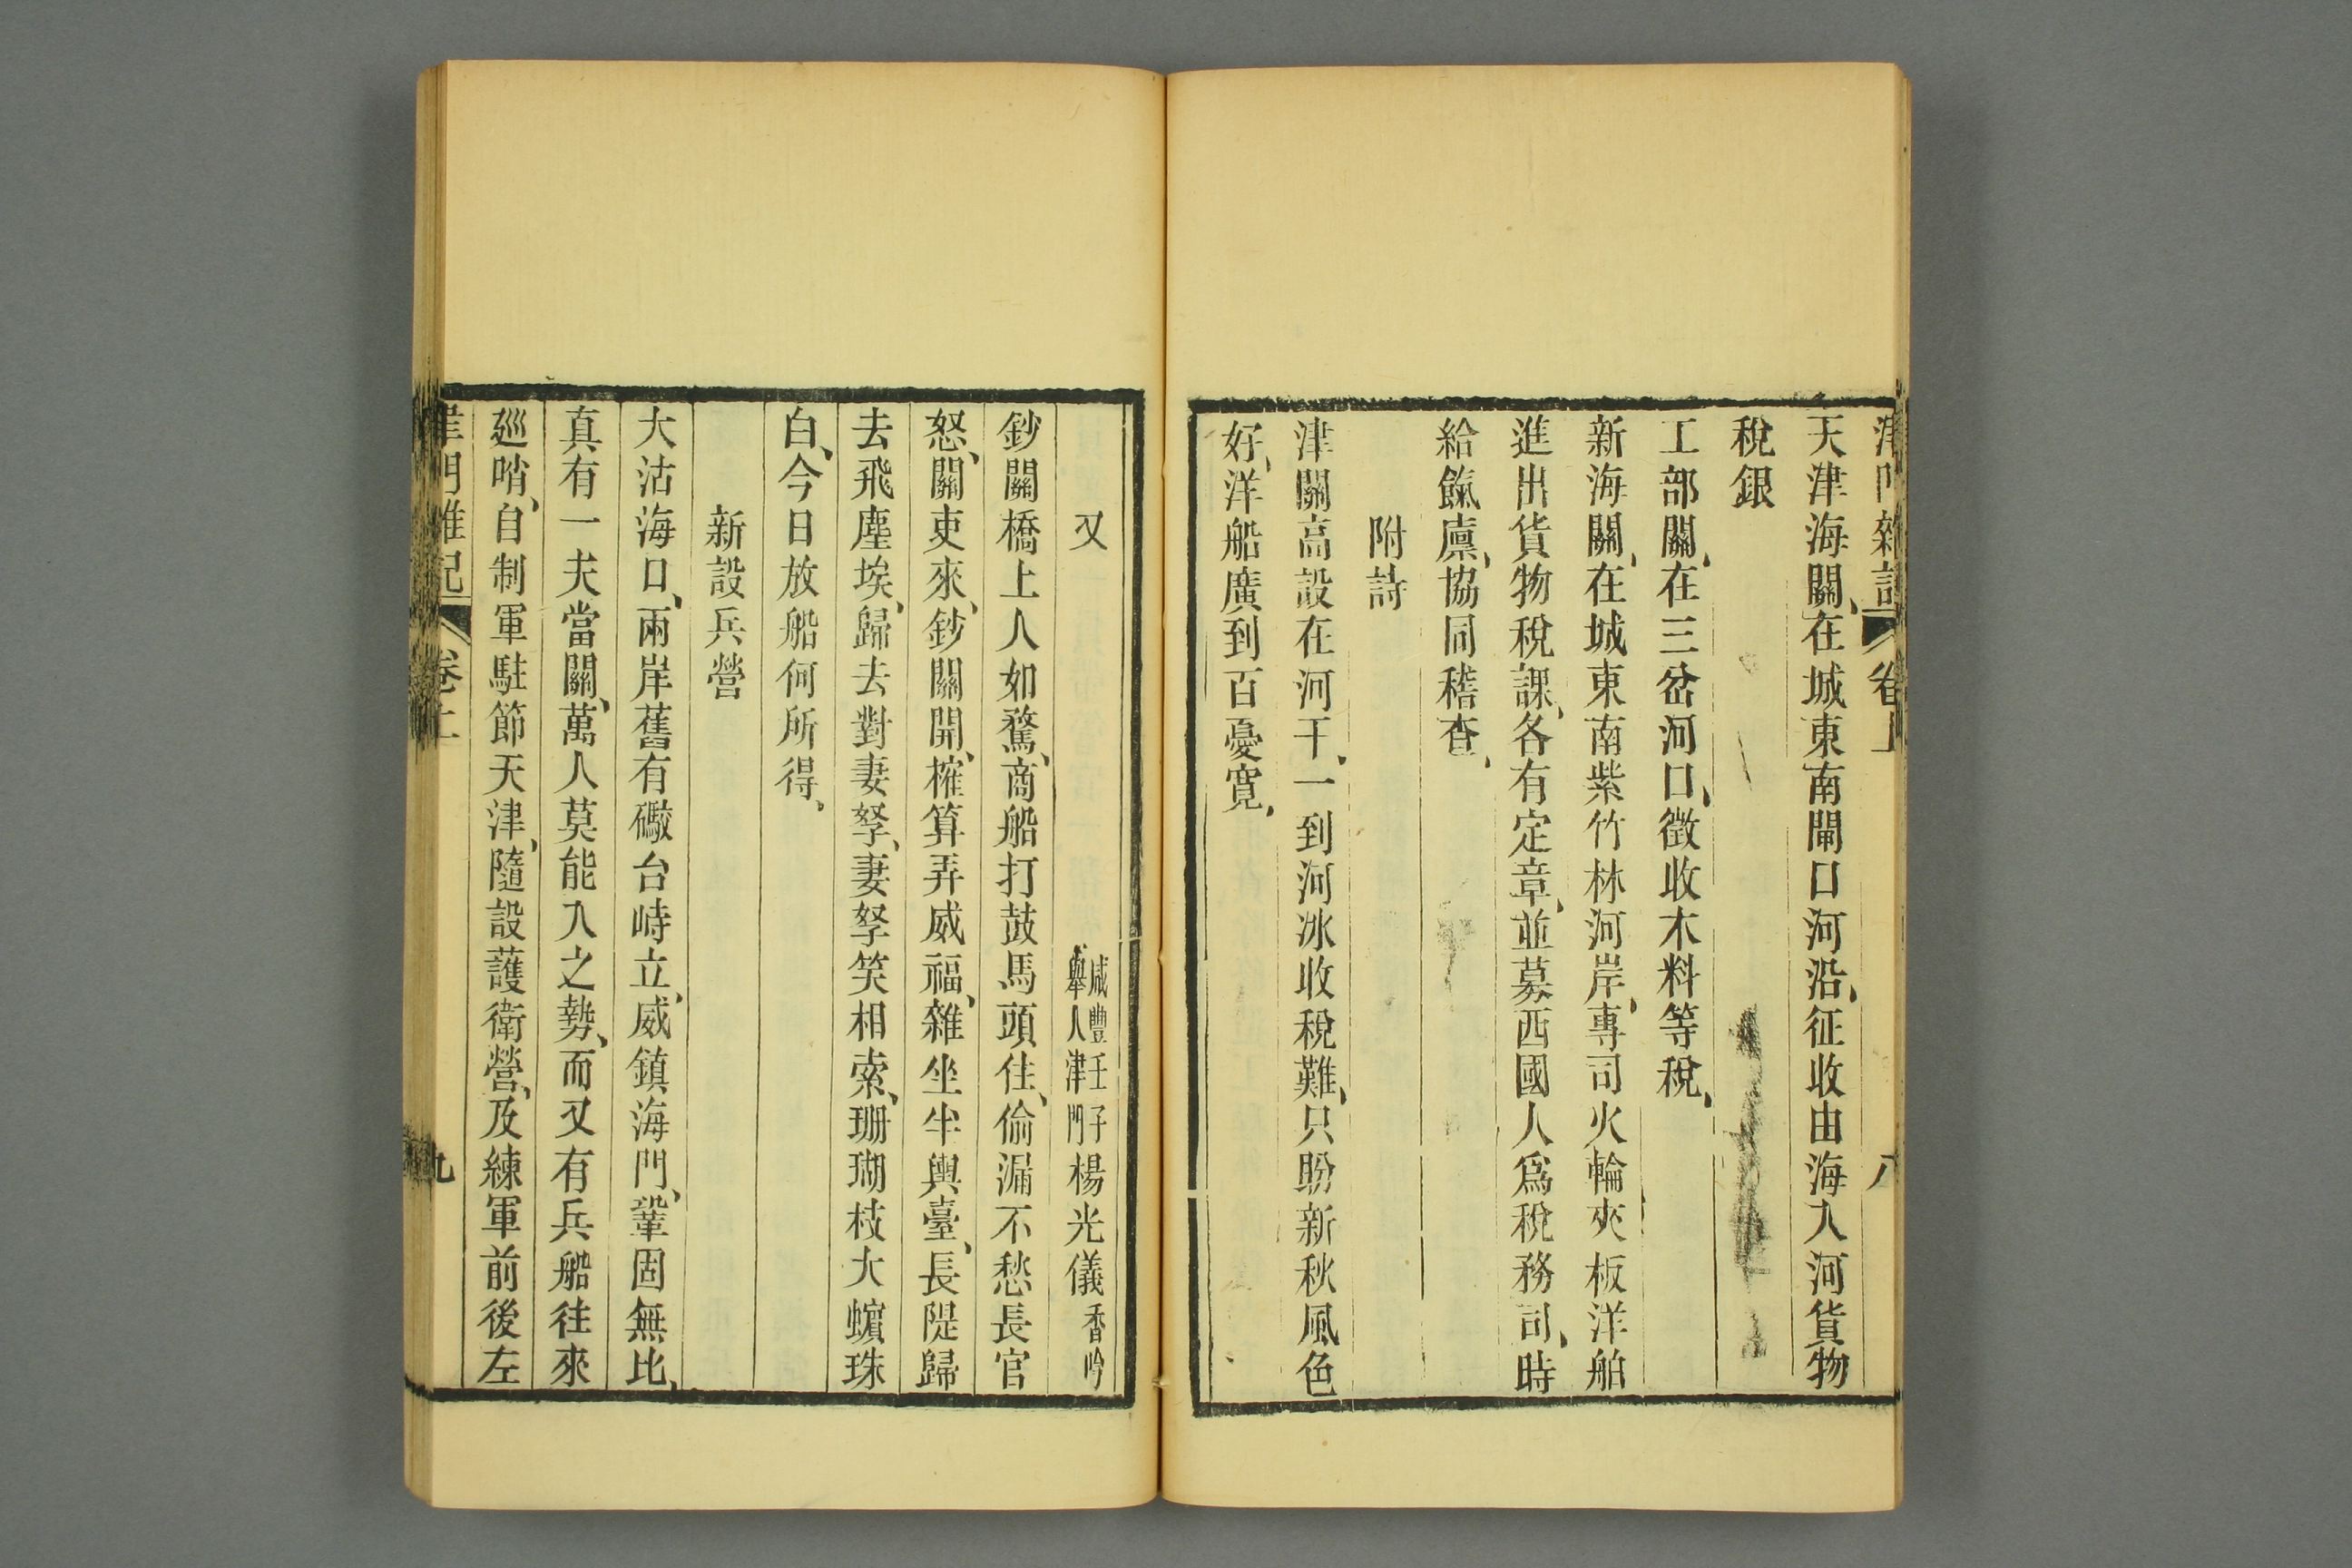 津門雜記 卷上 八
天津海關、在城東南閘口河沿、征收由海入河貨物
稅銀
工部關、在三岔河口、徵收木料等稅、
新海關、在城東南紫竹林河岸、專司火輪夾板洋舶
進出貨物稅課、各有定章、並募西國人爲稅務司、時
給餼廩、協同稽查、
附詩
津關高設在河干、一到河冰收稅難、只盼新秋風色
好、洋船廣到百憂寬、
又 咸豐壬子舉人津門楊光儀香吟
鈔關橋上人如鶩、商船打鼓馬頭住、偷漏不愁長官
怒、關吏來、鈔關開、榷算弄威福、雜坐半輿臺、長隄歸
去飛塵埃、歸去對妻孥、妻孥笑相索、珊瑚枝大蠙珠
白、今日放船何所得、
新設兵營
大沽海口、兩岸舊有礮台峙立、威鎮海門、鞏固無比、
真有一夫當關、萬人莫能入之勢、而又有兵船往來
廵哨、自制軍駐節天津、隨設護衛營、及練軍前後左
津門雜記 卷上 九